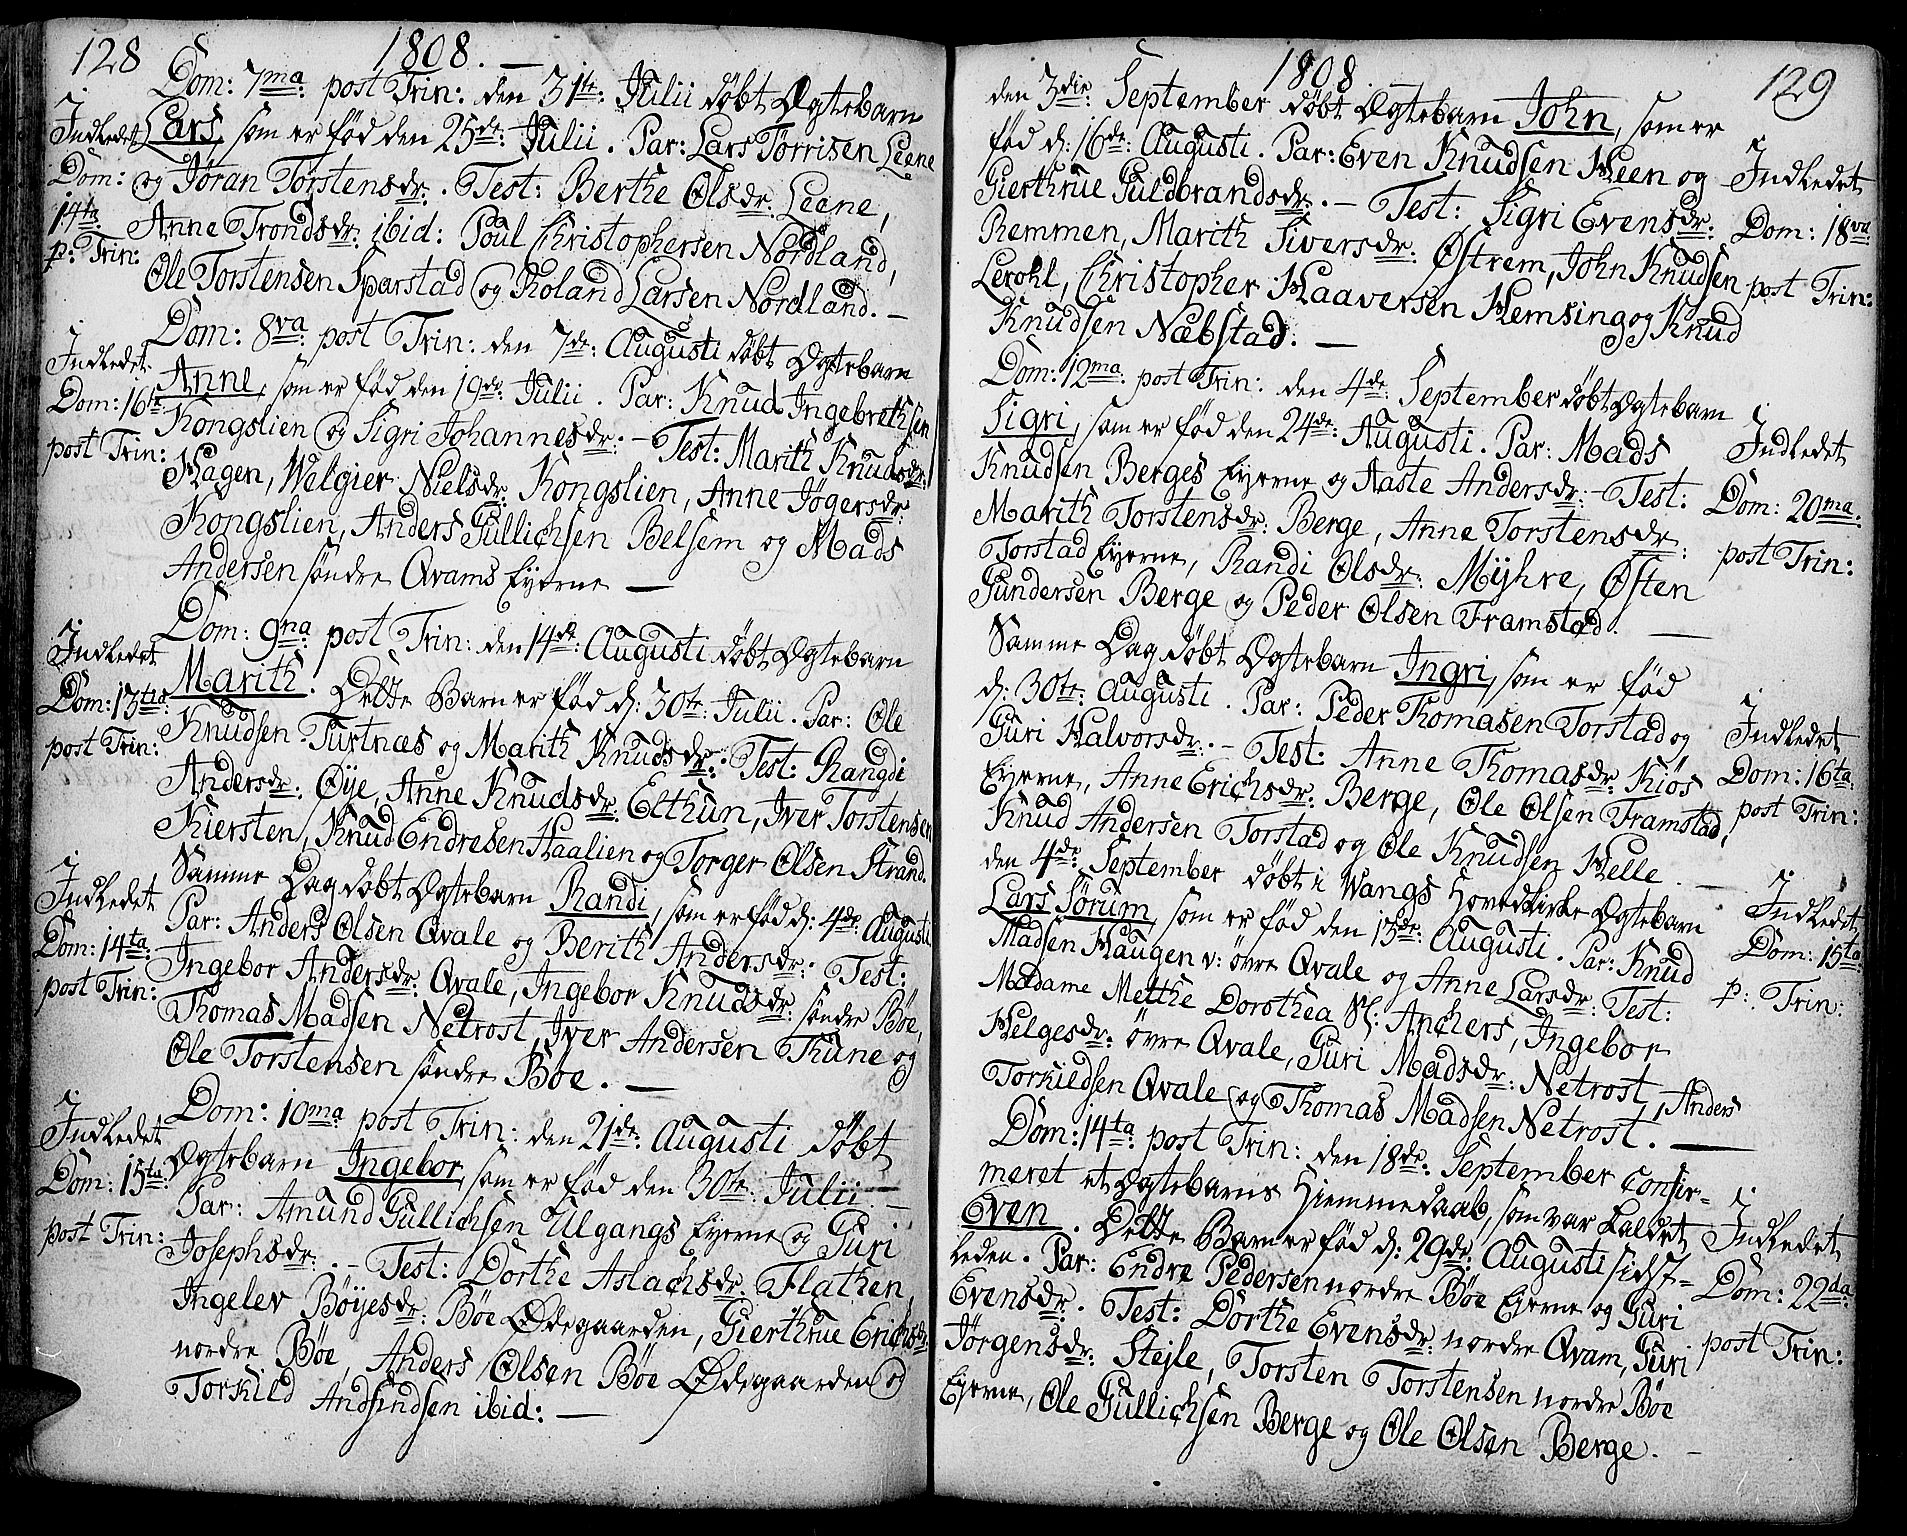 128
1808. —
Dom: 7ma: post Trin: den 31te: Julii døbt Ægtebarn
Lars, som er fød den 25de: Julii. Par: Lars Torrisen Leene
og Jøran Torstensdr:. Test: Berthe Olsdr: Leene,
Anne Trondsdr: ibid: Poul Christophersen Nordland,
Ole Torstensen Sparstad og Roland Larsen Nordland. —
Indledet
Dom:
14ta
p: Trin:
Dom: 8va: post Trin: den 7de: Augusti døbt Ægtebarn
Anne, som er fød den 19de: Julii. Par: Knud Ingebrethsen
Kongslien og Sigri Johannesdr:. — Test: Marith Knudsdr:
Hagen, Welgier Nielsdr: Kongslien, Anne Jøgersdr:
Kongslien, Anders Gullichsen Belsem og Mads
Andersen søndre Qvams Eyerne —
Indledet
Dom: 16te
post Trin:
Dom: 9na: post Trin: den 14de: Augusti døbt Ægtebarn
Marith. Dette Barn er fød d: 30te: Julii. Par: Ole
Knudsen Turtnæs og Marith Knudsdr:. Test: Rangdi
Andersdr: Øye, Anne Knudsdr: Elthun, Iver Torstensen
Kiersten, Knud Endresen Haalien og Torger Olsen Strand.
Indledet
Dom: 13tia:
post Trin:
Samme Dag døbt Ægtebarn Randi, som er fød d: 4de: Augusti
Par: Anders Olsen Qvale og Berith Andersdr:. Test:
Ingebor Andersdr: Qvale, Ingebor Knudsdr: søndre Bøe,
Thomas Madsen Netrost, Iver Andersen Thune og
Ole Torstensen søndre Bøe. —
Indledet
Dom: 14ta:
post Trin:
Dom: 10ma post Trin: den 21de: Augusti døbt
Ægtebarn Ingebor, som er fød den 30te: Julii —
Par: Amund Gullichsen Ulgangs Eyerne og Guri
Josephsdr:. — Test: Dorthe Aslachsdr: Flathen,
Ingelev Bøyesdr: Bøe Ødegaarden, Gierthrue Erichsdr:
nordre Bøe, Anders Olsen Bøe Ødegaarden og
Torkild Andsindsen ibid: —
Indledet
Dom: 15ta:
post Trin:
1808.
129
den 3die: September døbt Ægtebarn John, som er
fød d: 16de: Augusti. Par: Even Knudsen Heen og
Gierthrue Guldbrandsdr:. — Test: Sigri Evensdr:
Remmen, Marith Siversdr: Østrem, John Knudsen
Lerohl, Christopher Haaversen Hemsing og Knud
Knudsen Næbstad. —
Indledet
Dom: 18va:
post Trin:
Dom: 12ma: post Trin: den 4de: September døbt Ægtebarn
Sigri, som er fød den 24de: Augusti. Par: Mads
Knudsen Berges Eyerne og Aaste Andersdr: — Test:
Marith Torstensdr: Berge, Anne Torstensdr:
Torstad Eyerne, Randi Olsdr: Myhre, Østen
Gundersen Berge og Peder Olsen Framstad. —
Indledet
Dom: 20ma:
post Trin:
Samme Dag døbt Ægtebarn Ingri, som er fød
d: 30te: Augusti. Par: Peder Thomasen Torstad og
Guri Halvorsdr:. — Test: Anne Thomasdr: Kiøs
Eyerne, Anne Erichsdr: Berge, Ole Olsen Framstad,
Knud Andersen Torstad og Ole Knudsen Helle. —
Indledet
Dom: 16ta
post Trin:
den 4de: September døbt i Wangs Hovedkirke Ægtebarn
Lars Sørum, som er fød den 15de: Augusti. Par: Knud
Madsen Haugen v: øvre Qvale og Anne Larsdr: Test:
Madame Metthe Dorothea Sl: Anchers, Ingebor
Helgesdr: øvre Qvale, Guri Madsdr: Netrost, Anders
Torkildsen Qvale og Thomas Madsen Netrost. —
Indledet
Dom: 15ta:
p: Trin:
Dom: 14ta: post Trin: den 18de: September confir-
meret et Ægtebarns Hjemmedaab, som var kaldet
Even. Dette Barn er fød d: 29de: Augusti sidst-
leden. Par: Endre Pedersen nordre Bøe Eyerne og Guri
Evensdr:. Test: Dorthe Evensdr: nordre Qvam, Guri
Jørgensdr: Stejle, Torsten Torstensen nordre Bøe
Eyerne, Ole Gullichsen Berge og Ole Olsen Berge. —
Indledet
Dom: 22da:
post Trin: